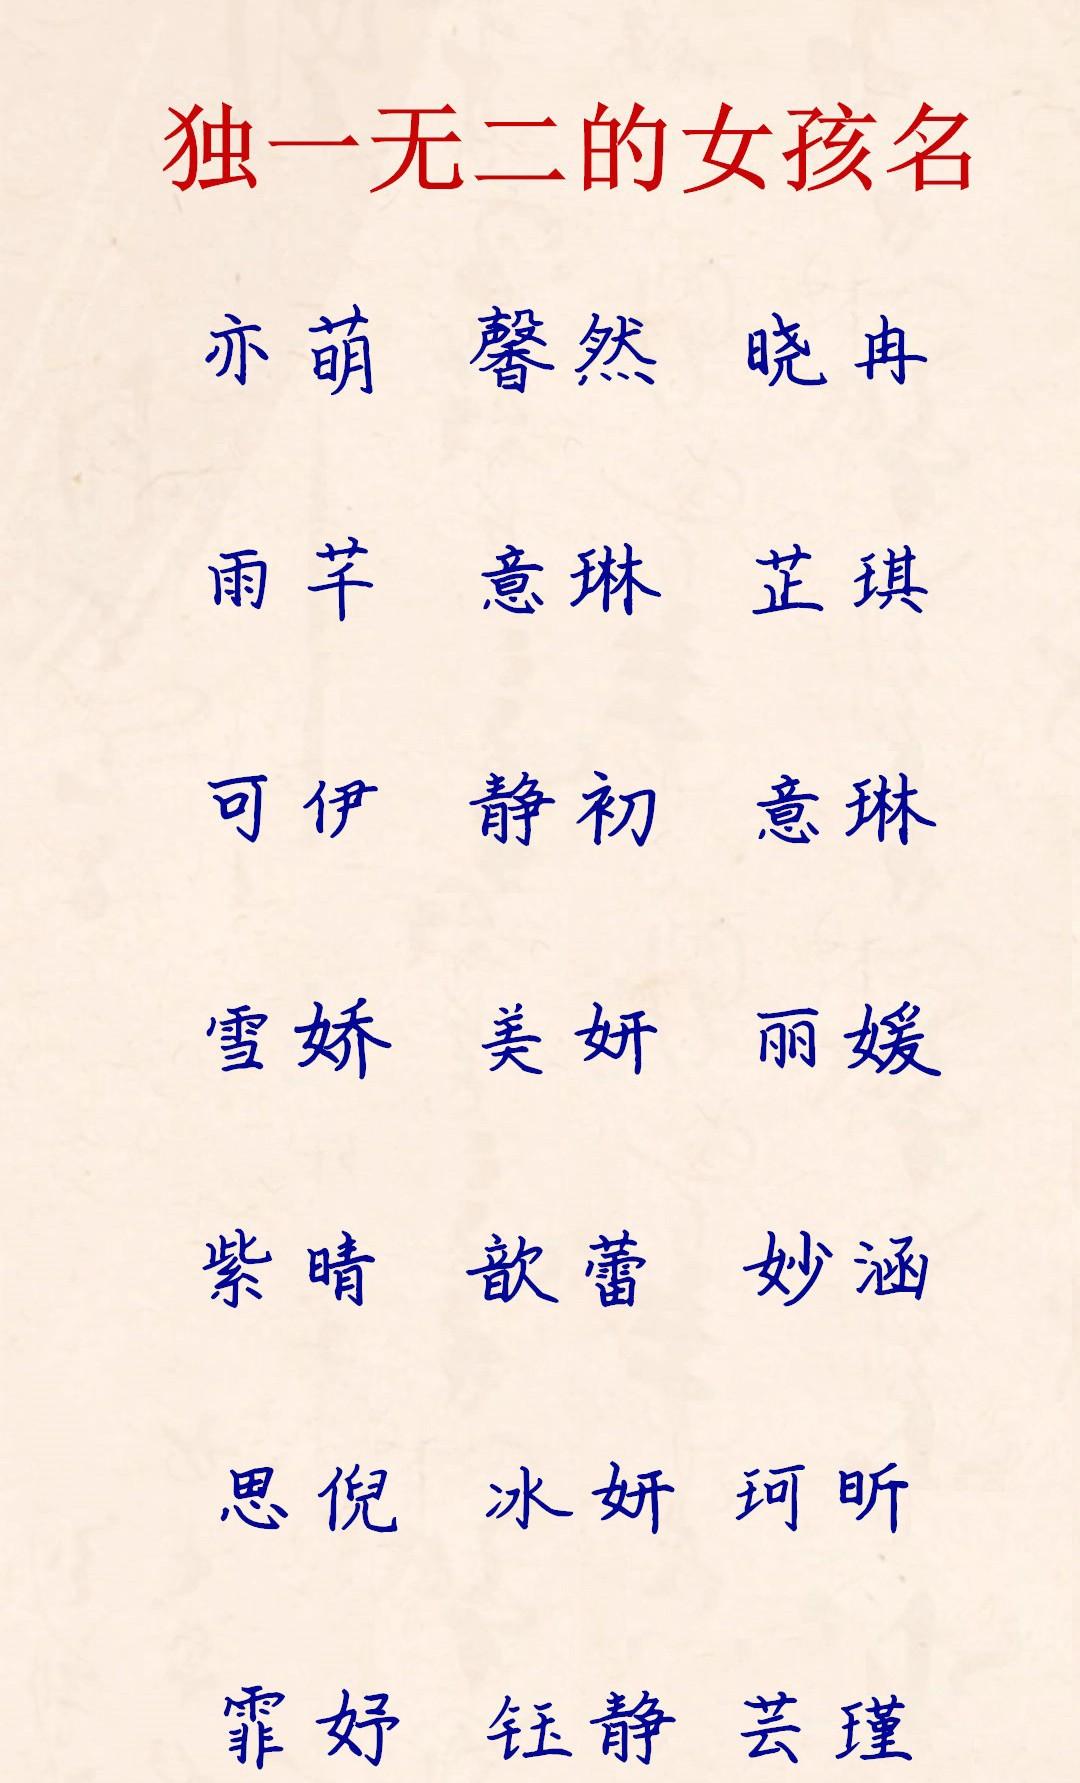 独一无二的女孩名
亦萌 馨然 晓冉
雨芊 意琳 芷琪
可伊 静初 意琳
雪娇 美妍 丽媛
紫晴 歆蕾 妙涵
思倪 冰妍 珂昕
霏妤 钰静 芸瑾